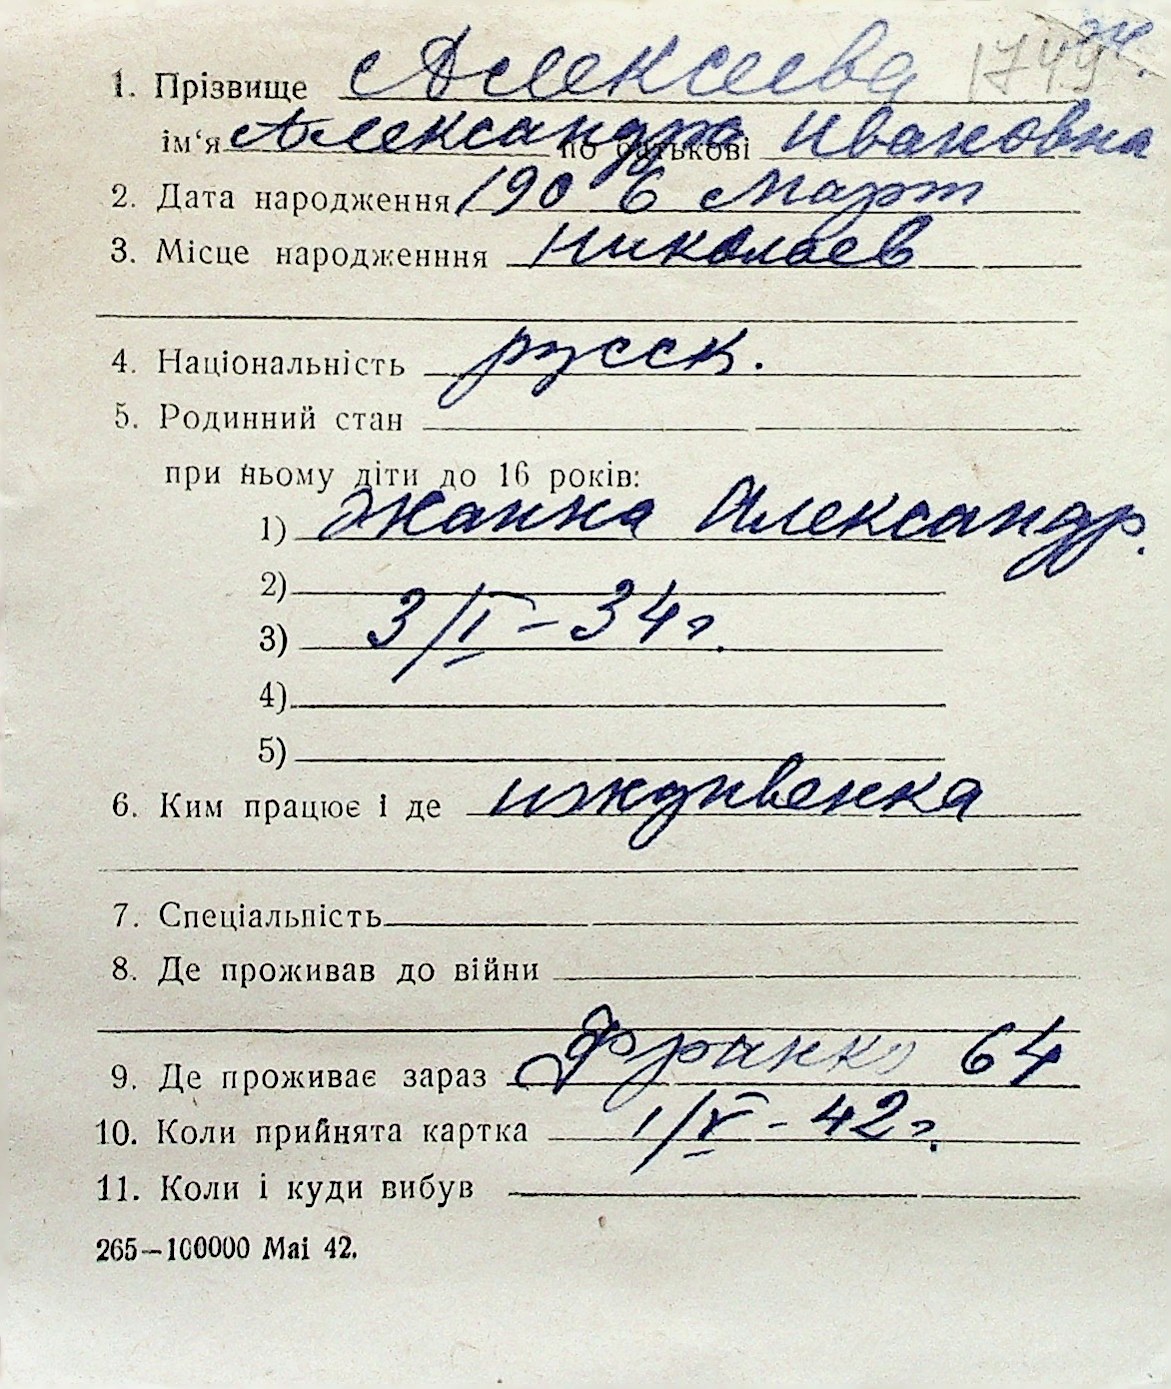 1749
1. Прізвище Алексеева
ім'я Александра по батькові Ивановна
2. Дата народження 1906 Март
3. Місце народженння Николаев
4. Національність русск.
5. Родинний стан
при ньому діти до 16 років:
1) Жанна Александр.
2)
3) 3/I – 34 г.
4)
5)
6. Ким працює і де иждивенка
7. Спеціальність
8. Де проживав до війни
9. Де проживає зараз Франко 64
10. Коли прийнята картка 1/V - 42 г.
11. Коли і куди вибув
265–100000 Mai 42.